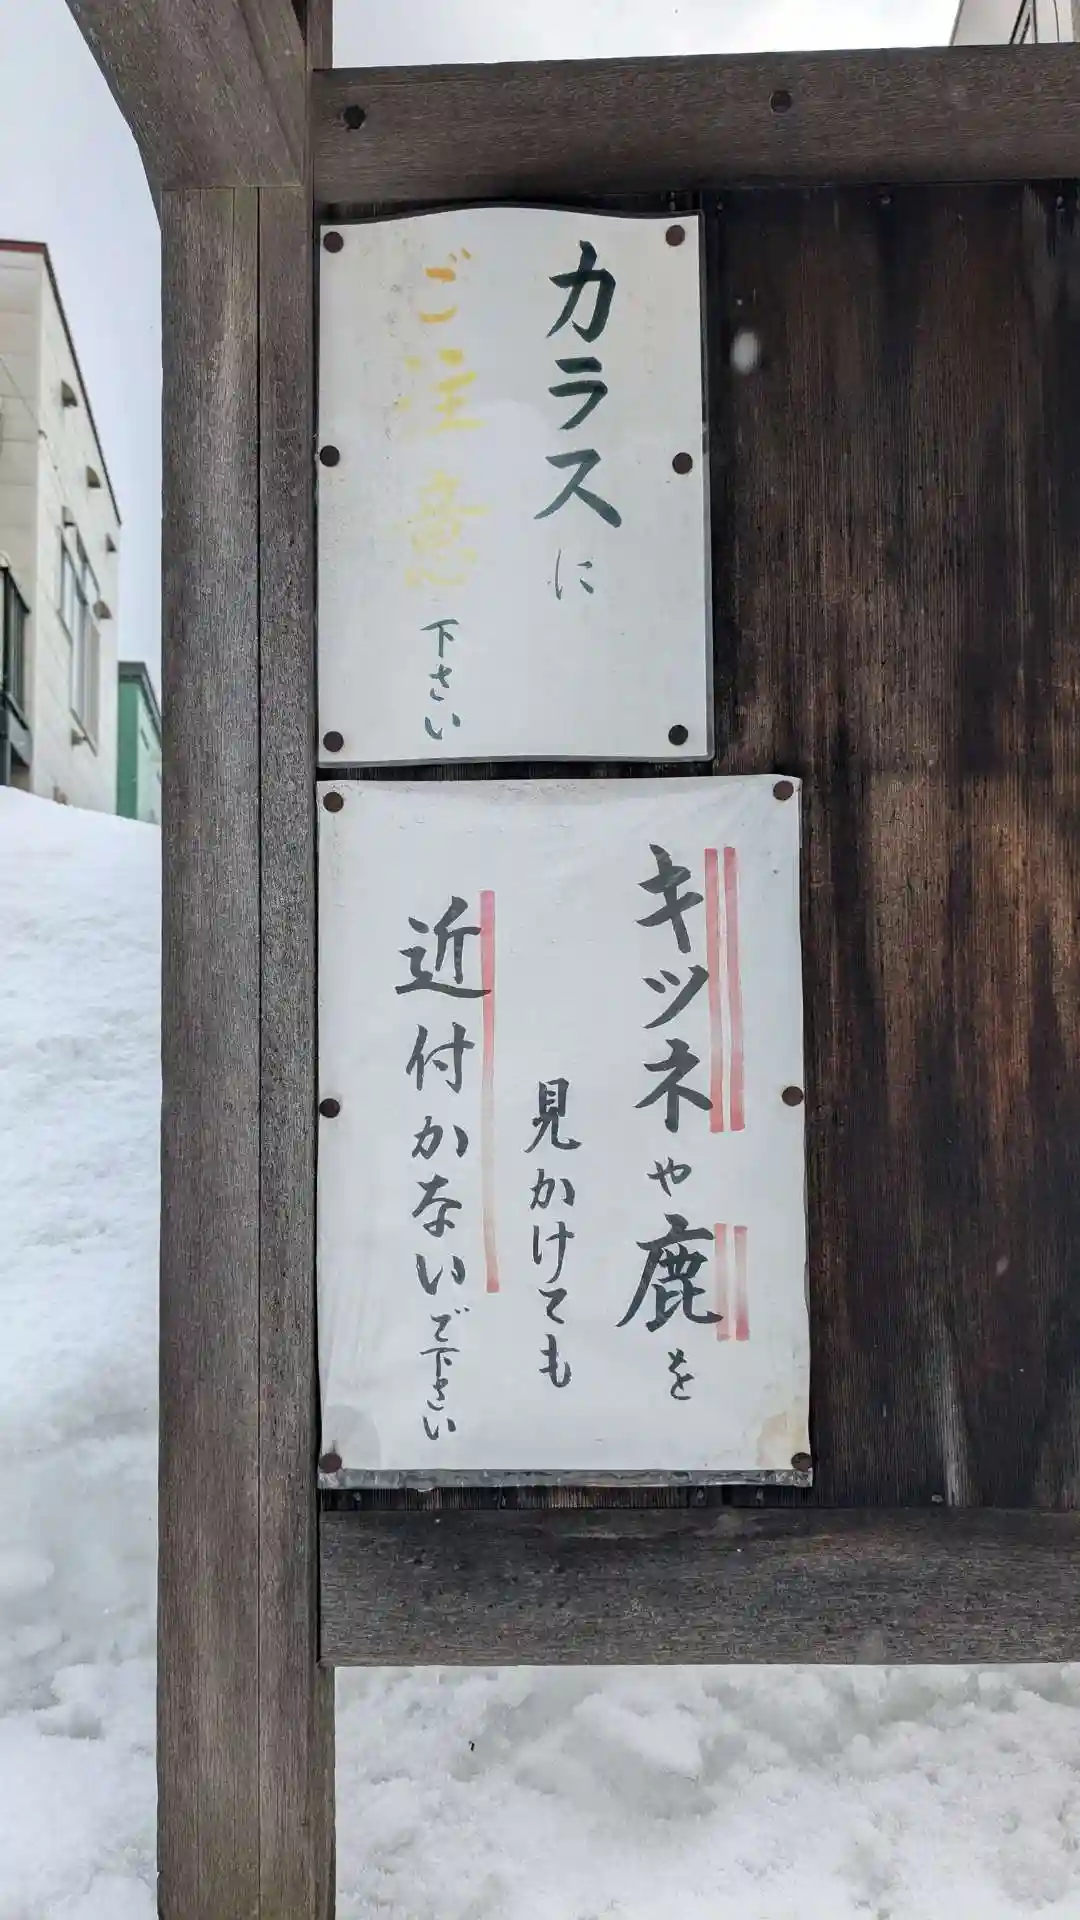 カラスに
ご注意下さい
キツネや鹿を
見かけても
近付かないで下さい